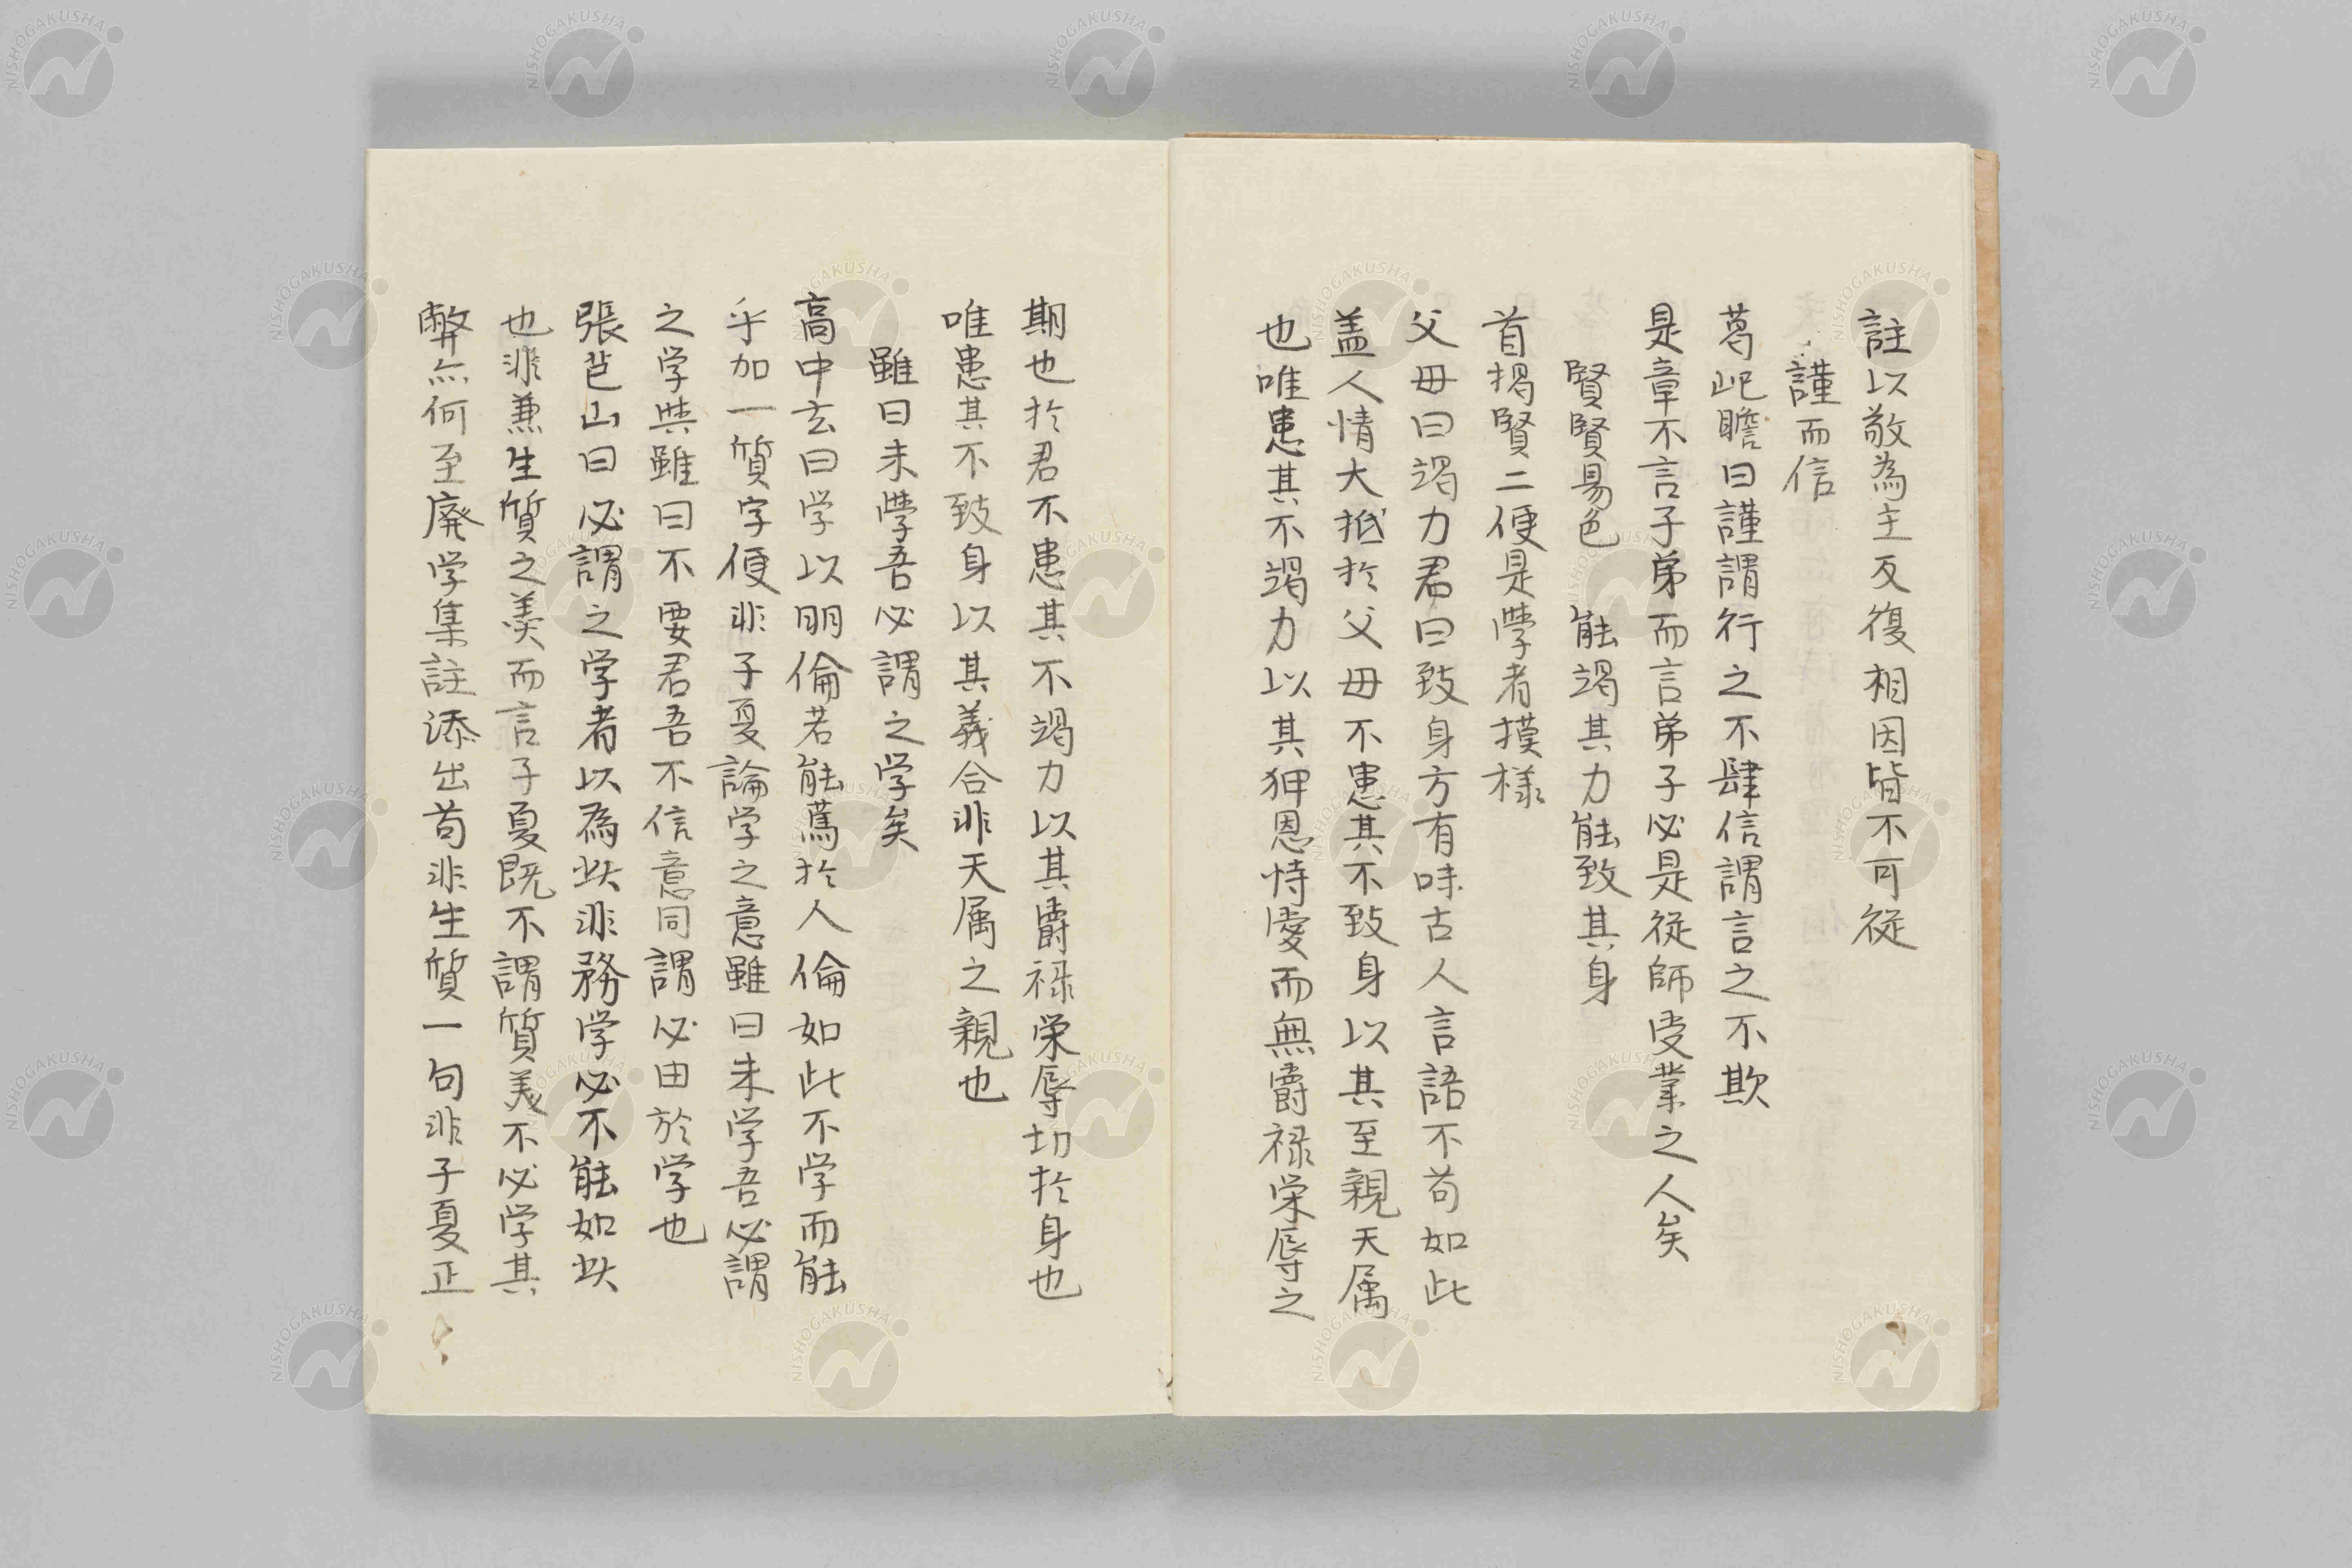 註以敬為主反復相因皆不可従
謹而信
葛屺瞻曰謹謂行之不肆信謂言之不欺
是章不言子弟而言弟子必是従師受業之人矣
賢賢易色　能竭其力能致其身
首掲賢二便是學者摸様
父母曰竭力君曰致身方有味古人言語不苟如此
盖人情大抵於父母不患其不致身以其至親天属
也唯患其不竭力以其狎恩恃愛而無爵禄栄辱之
期也於君不患其不竭力以其爵禄栄辱切於身也
唯患其不致身以其義合非天属之親也
雖曰未學吾必謂之学矣
高中玄曰学以明倫若能篤於人倫如此不学而能
乎加一質字便非子夏論学之意雖曰未学吾必謂
之学與雖曰不要君吾不信意同謂必由於学也
張芑山曰必謂之学者以為此非務学必不能如此
也非兼生質之美而言子夏既不謂質美不必学其
弊亦何至廃学集註添出苟非生質一句非子夏正
NISHOGAKUSHA